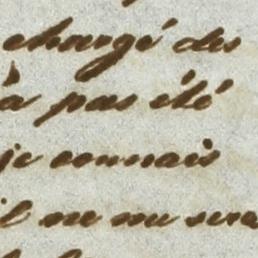 changé des
à pas été
je connais
il me nu sera